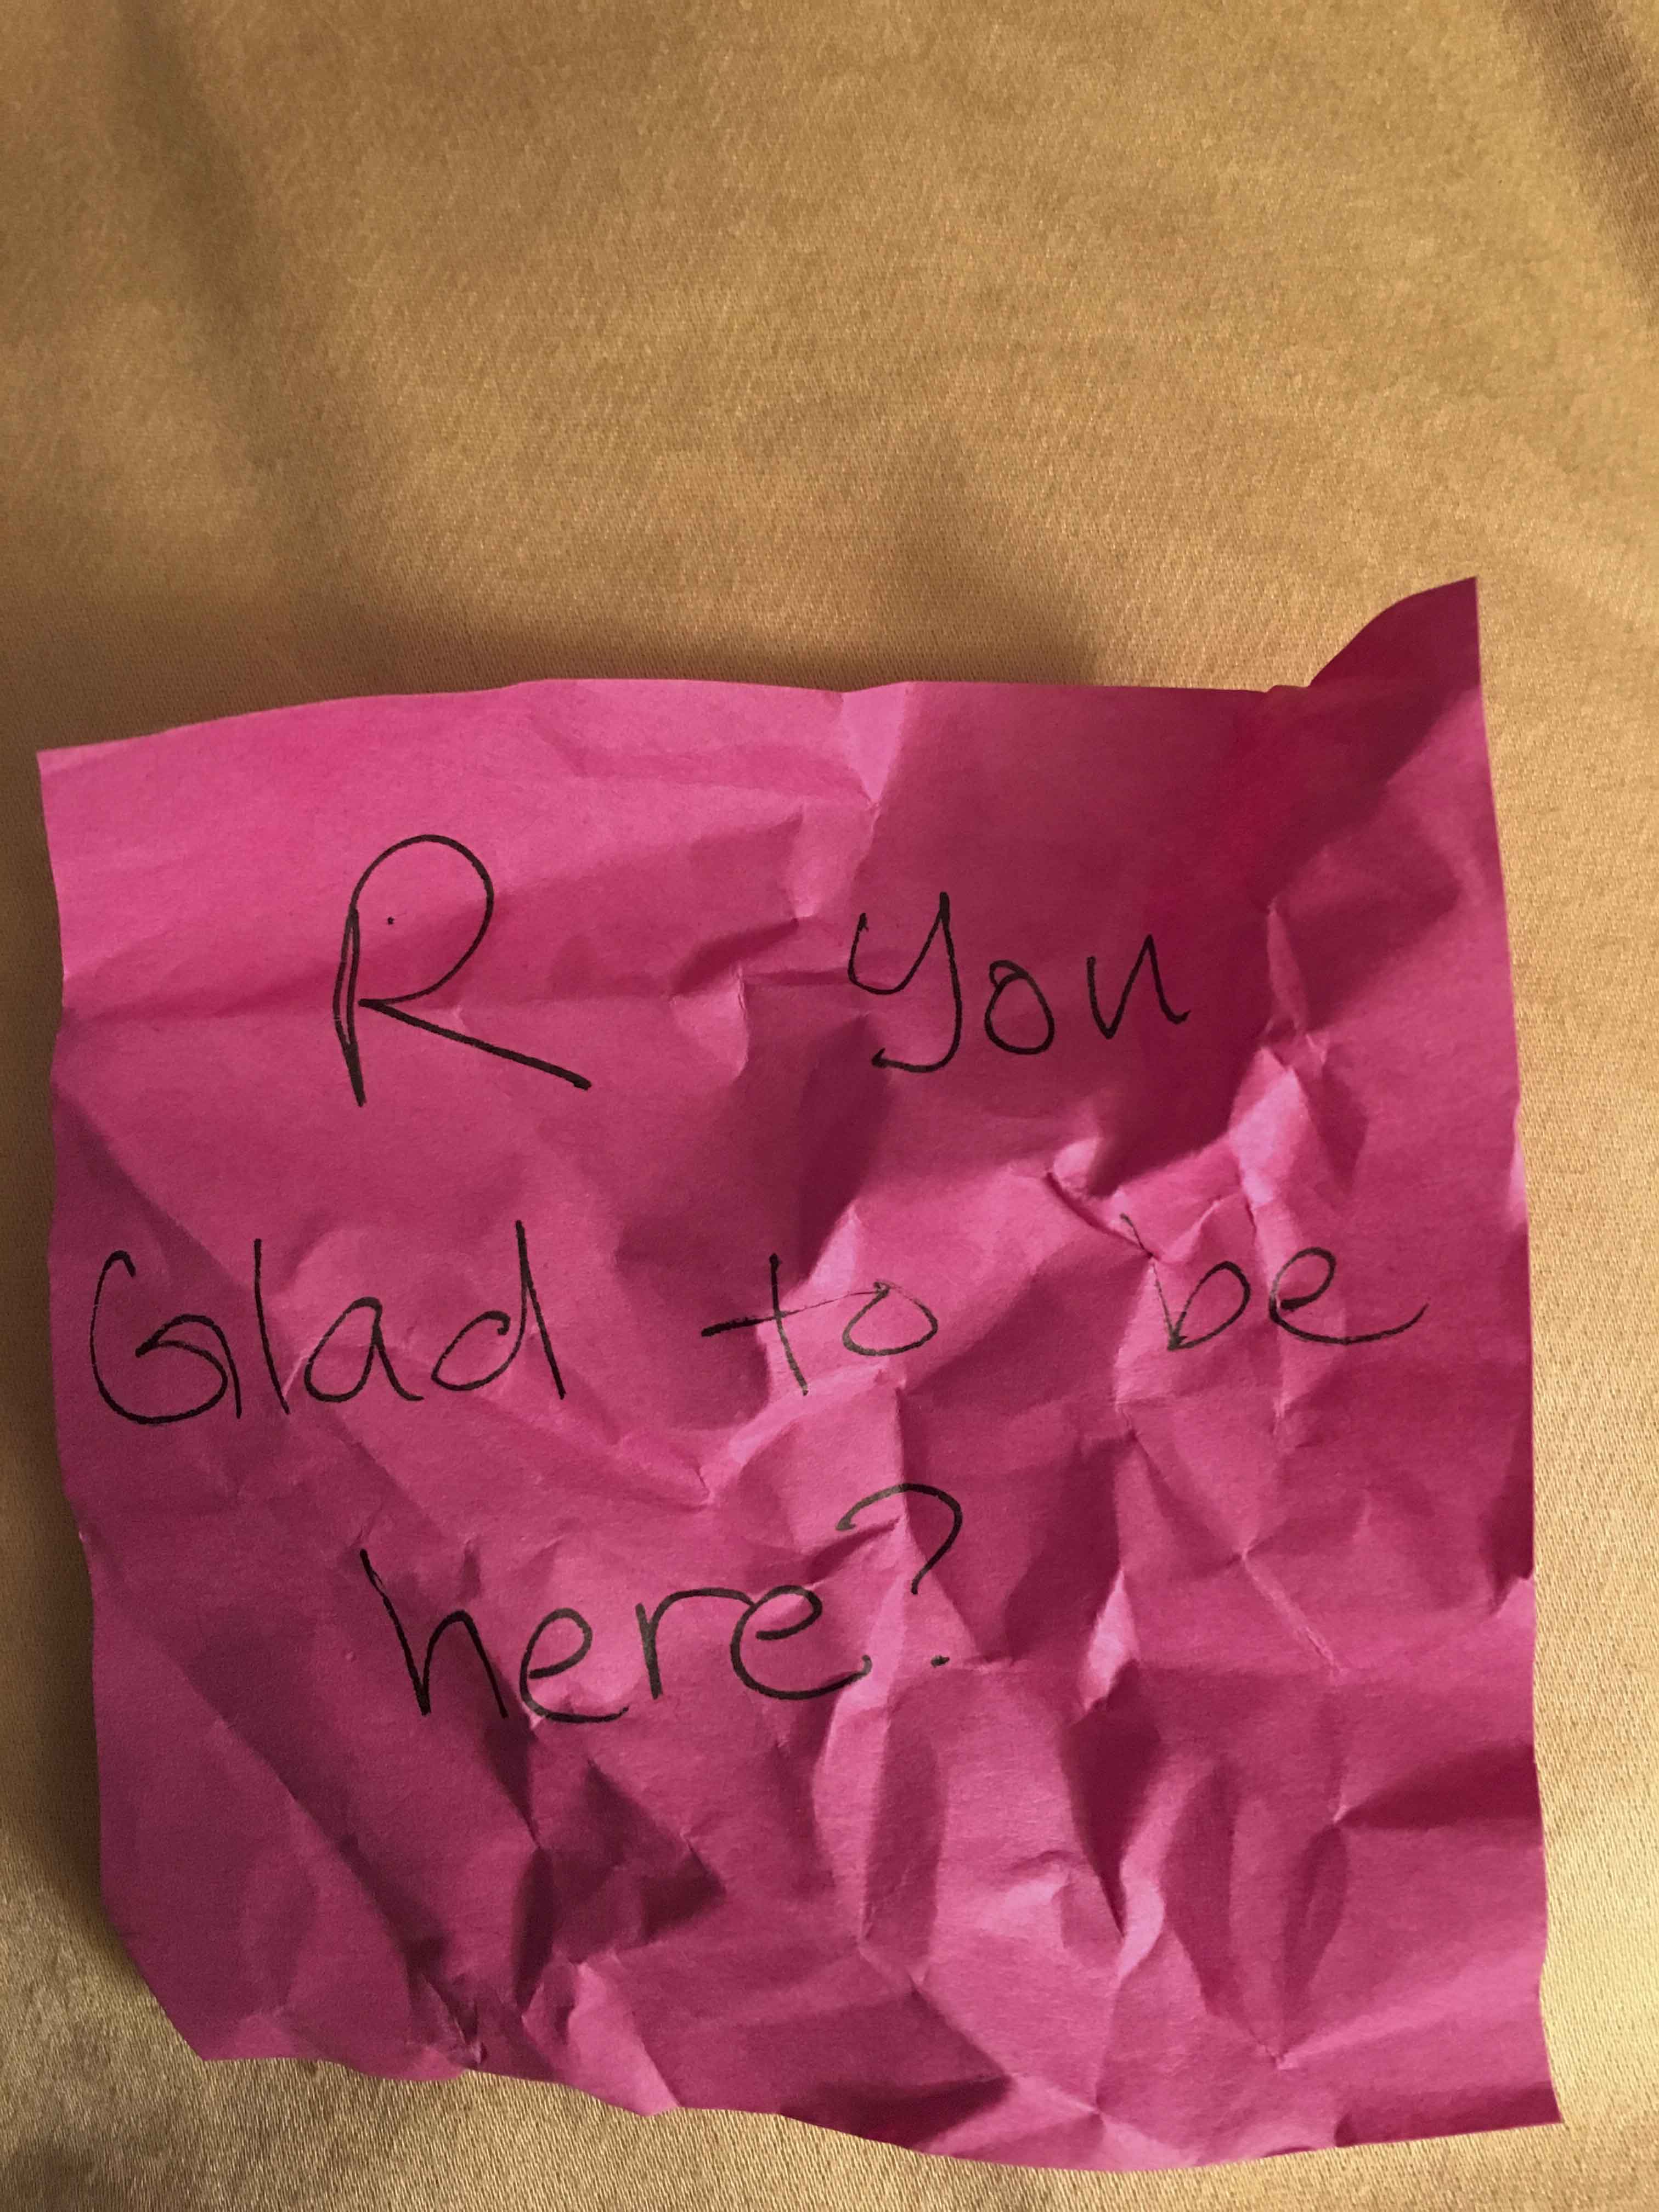 R you
Glad to be
here?